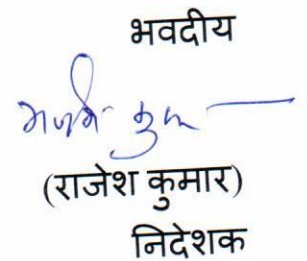 भवदीय
(राजेश कुमार)
निदेशक